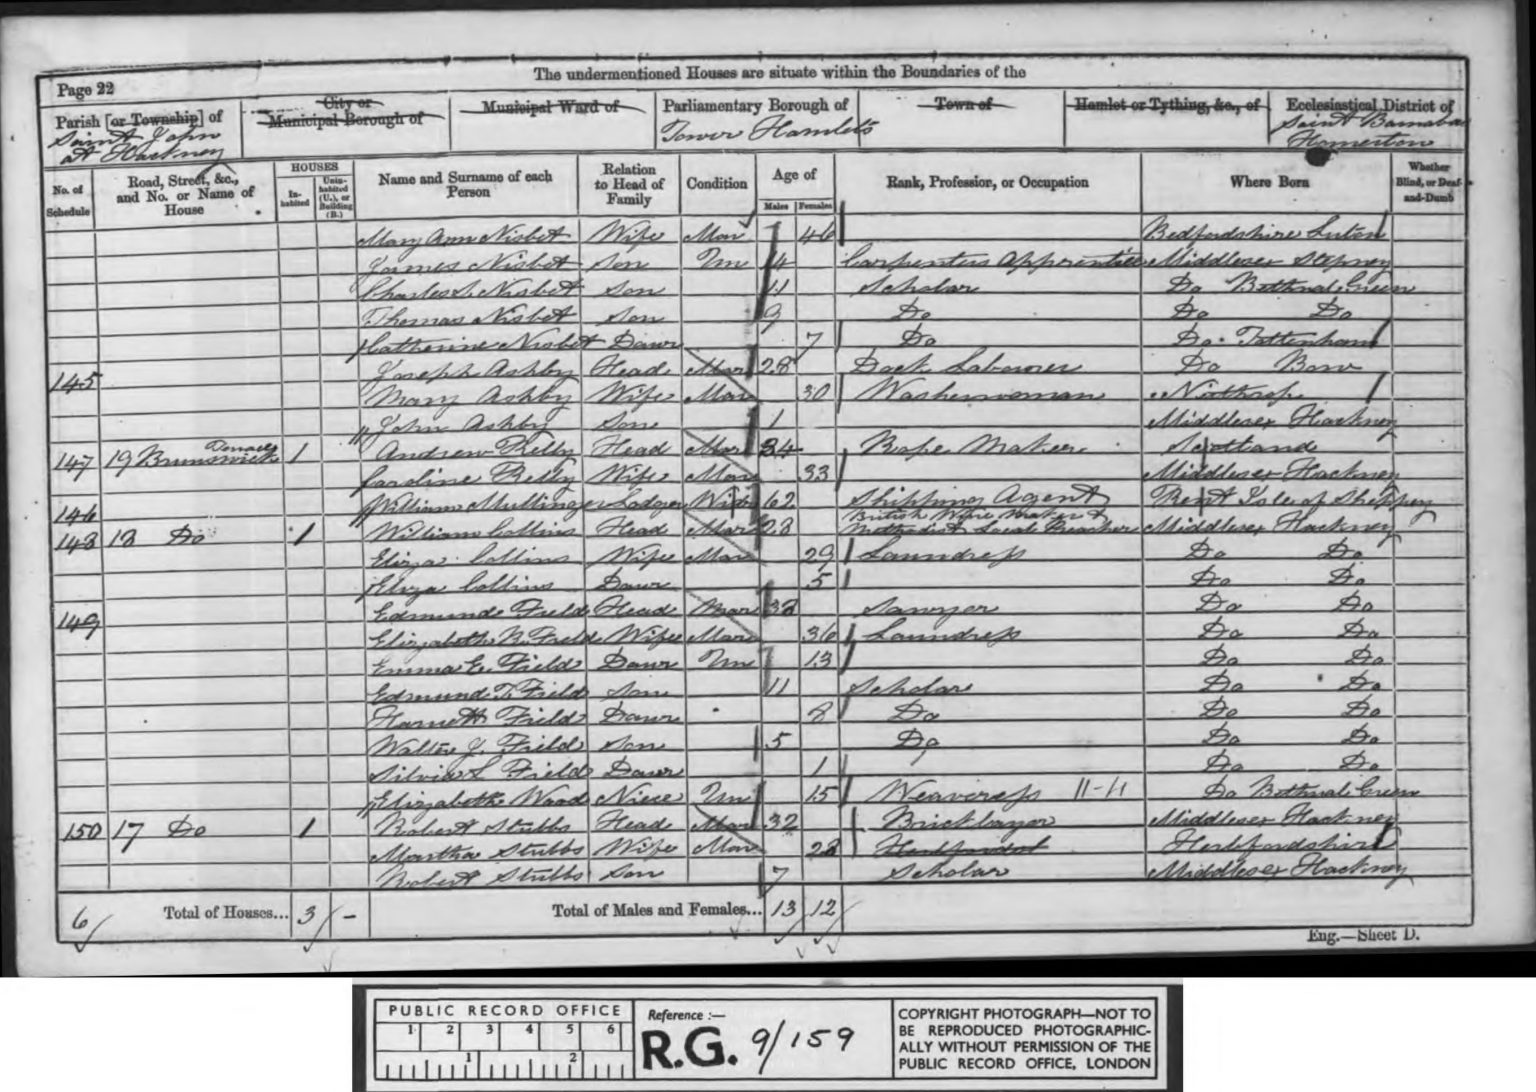 The undermentioned Houses are situate within the Boundaries of the
Page 22
Parish [or Township] of Saint John at Hackney
City or Municipal Borough of
Municipal Ward of
Parliamentary Borough of Tower Hamlets
Town of
Hamlet or Tything, &c., of
Ecclesiastical District of Saint Barnabas Homerton
No. of Schedule
Road, Street, &c., and No. or Name of House
HOUSES
Inhabited
Uninhabited (U.), or Building (B.)
Name and Surname of each Person
Relation to Head of Family
Condition
Age of
Males Females
Rank, Profession, or Occupation
Where Born
Whether Blind, or Deaf-and-Dumb
Mary Ann Nisbet Wife Mar 46 Bedfordshire Luton
James Nisbet Son Un 14 Carpenters Apprentice Middlesex Stepney
Charles S. Nisbet Son 11 Scholar Do Bethnal Green
Thomas Nisbet Son 9 Do Do Do
Catherine Nisbet Daur 7 Do Do Tottenham
145 Joseph Ashby Head Mar 28 Dock Labourer Do Bow
Mary Ashby Wife Mar 30 Washerwoman
John Ashby Son 1 Middlesex Hackney
147 19 Brunswick Terrace 1 Andrew Head Mar 34 Rope Maker Scotland
Caroline Wife Mar 33 Middlesex Hackney
146 William Mullinger Lodger Widr 62 Shipping Agent Kent Isle of Sheppey
148 18 Do 1 William Collins Head Mar 28 British Wine Maker & Methodist Local Preacher Middlesex Hackney
Eliza Collins Wife Mar 29 Laundress Do Do
Eliza Collins Daur 5 Do Do
149 Edmund Field Head Mar 38 Sawyer Do Do
Elizabeth N. Field Wife Mar 36 Laundress Do Do
Emma E. Field Daur Un 13 Do Do
Edmund T. Field Son 11 Scholar Do Do
Harriett Field Daur 8 Do Do Do
Walter J. Field Son 5 Do Do Do
Silvia L Field Daur 1 Do Do
Elizabeth Wood Niece Un 15 Weaveress 11-11 Do Bethnal Green
150 17 Do 1 Robert Stubbs Head Mar 32 Bricklayer Middlesex Hackney
Martha Stubbs Wife Mar 28 Hertfordshire
Robert Stubbs Son 7 Scholar Middlesex Hackney
6 Total of Houses... 3 - Total of Males and Females... 13 12
Eng.—Sheet D.
PUBLIC RECORD OFFICE
1 2 3 4 5 6
1 2
Reference :—
R.G. 9/159
COPYRIGHT PHOTOGRAPH—NOT TO
BE REPRODUCED PHOTOGRAPHIC-
ALLY WITHOUT PERMISSION OF THE
PUBLIC RECORD OFFICE, LONDON